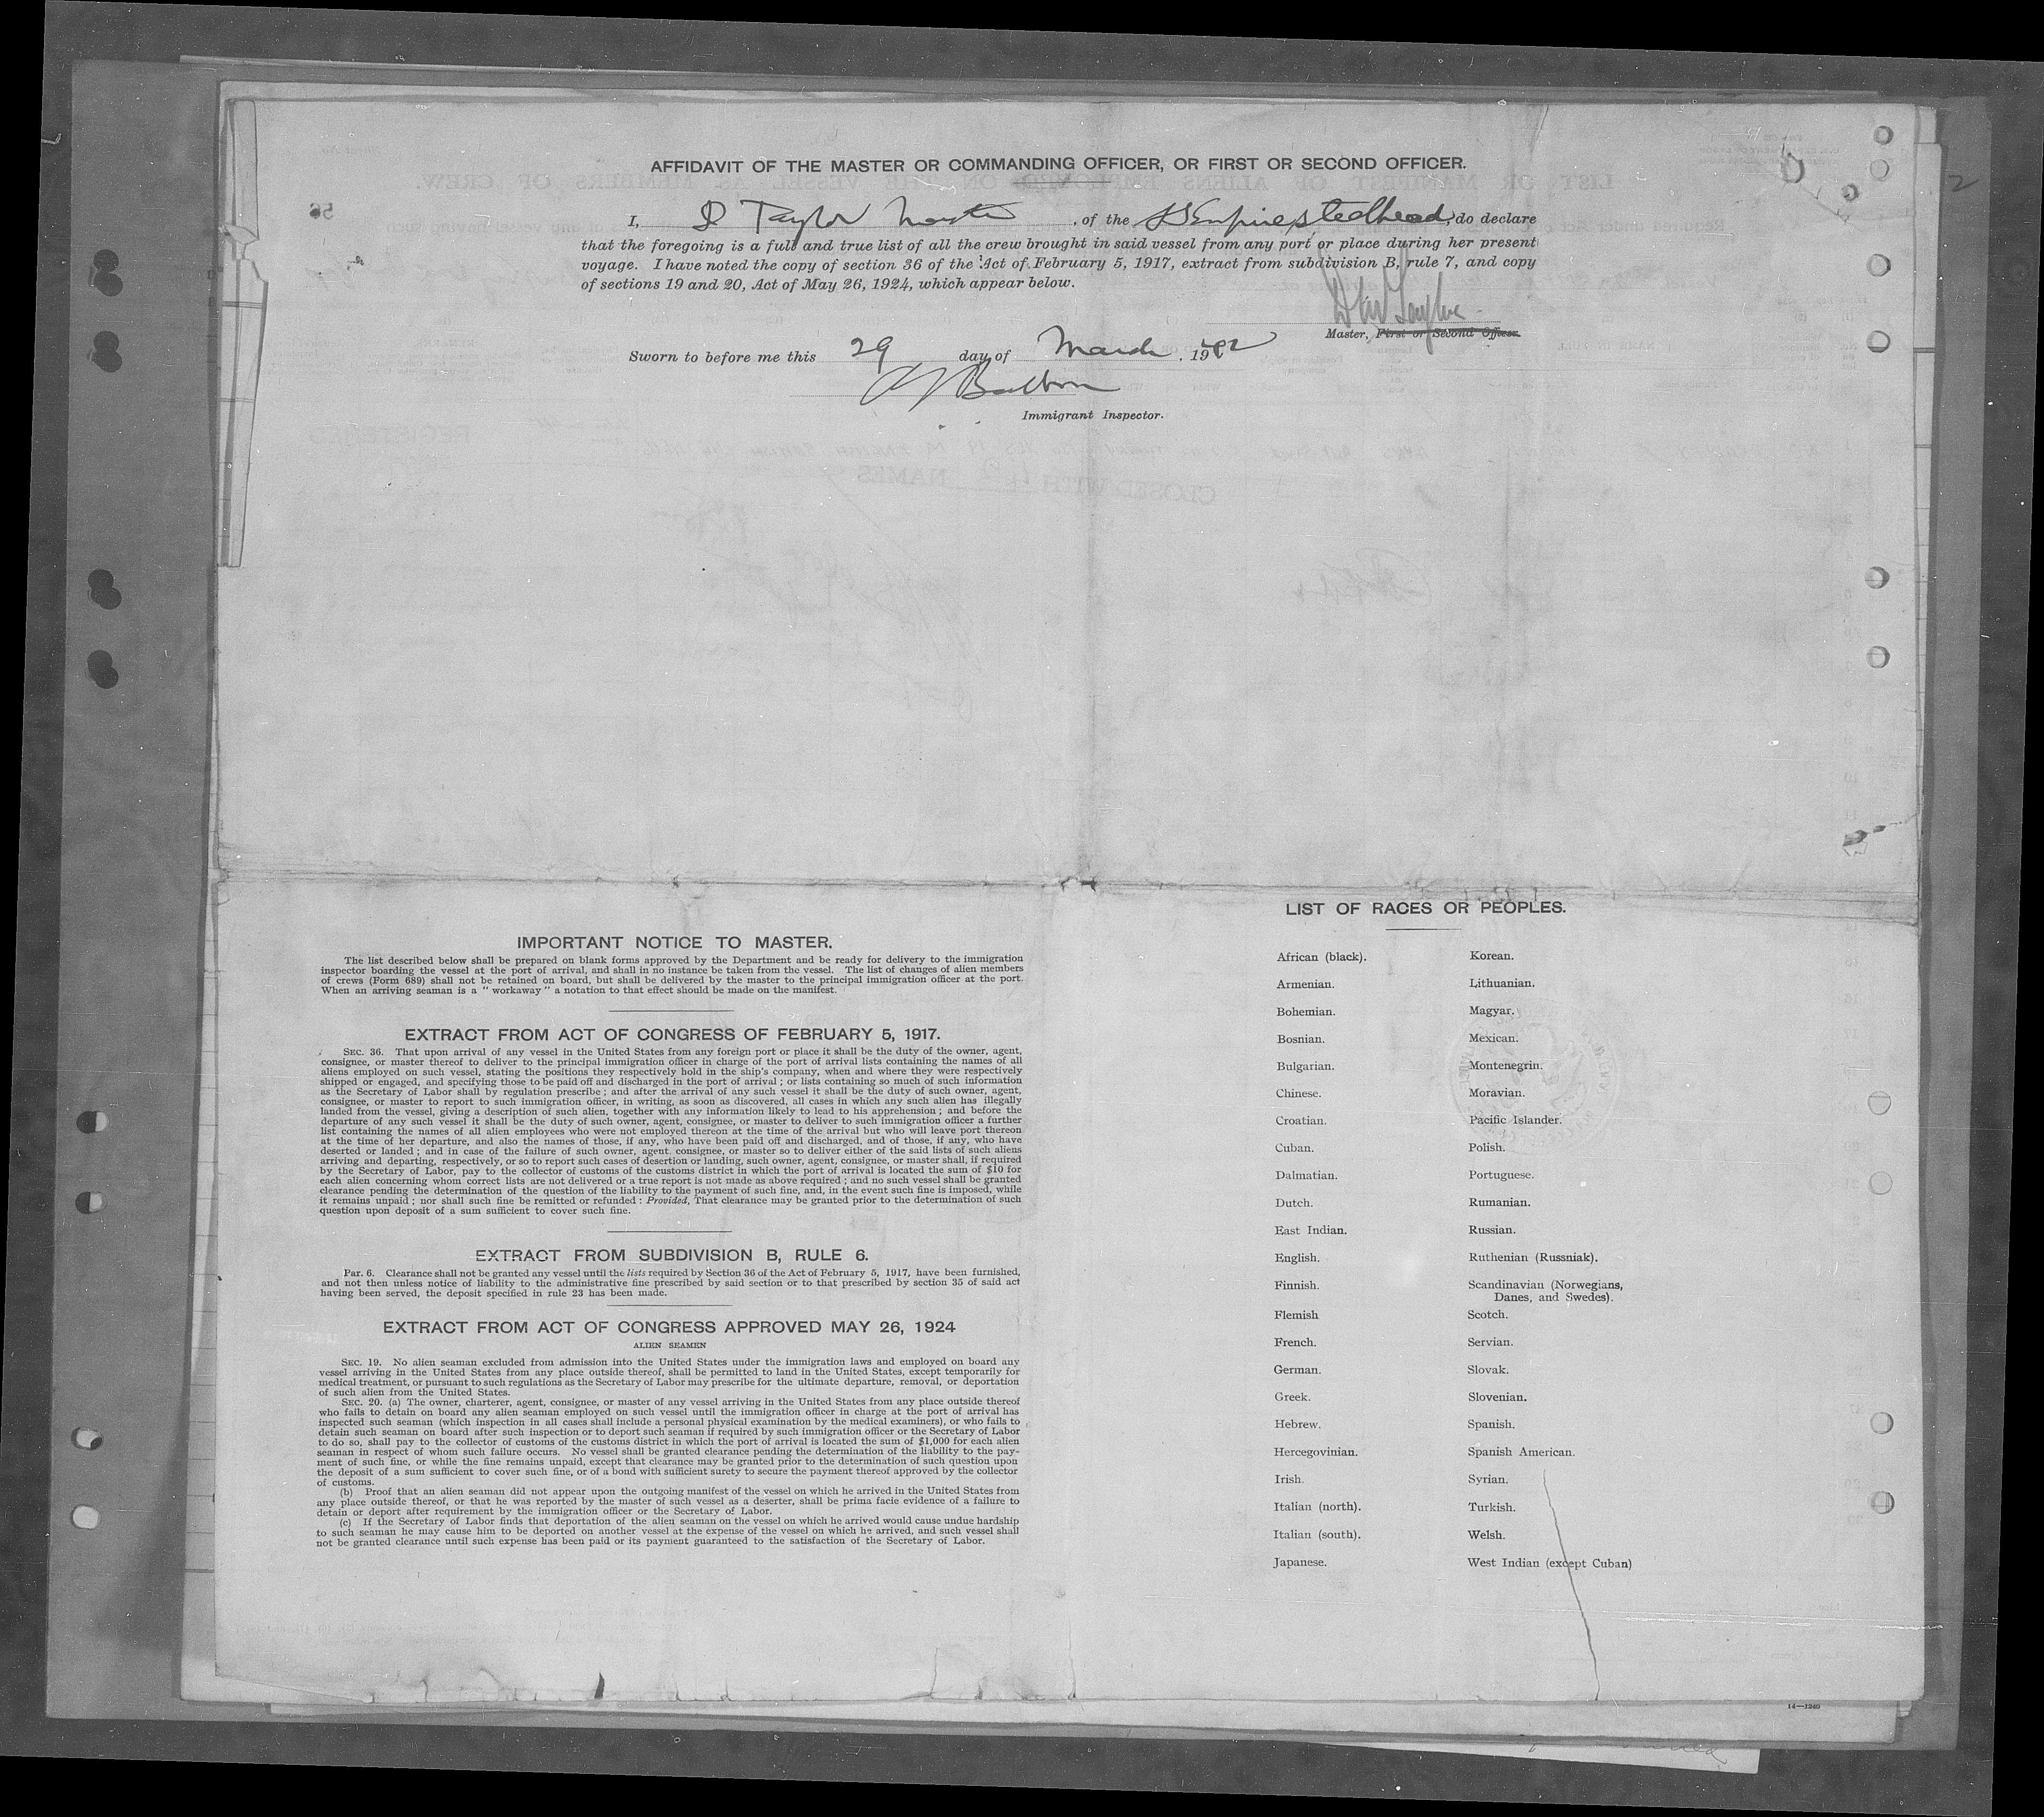 AFFIDAVIT OF THE MASTER OR COMMANDING OFFICER, OR FIRST OR SECOND OFFICER.
I, D Taylor Master, of the SS Empire Steelhead, do declare
that the foregoing is a full and true list of all the crew brought in said vessel from any port or place during her present
voyage. I have noted the copy of section 36 of the Act of February 5, 1917, extract from subdivision B, rule 7, and copy
of sections 19 and 20, Act of May 26, 1924, which appear below.
Taylor
Master, First or Second Officer.
Sworn to before me this 29 day of March, 1942
Immigrant Inspector.
2
IMPORTANT NOTICE TO MASTER.
The list described below shall be prepared on blank forms approved by the Department and be ready for delivery to the immigration
inspector boarding the vessel at the port of arrival, and shall in no instance be taken from the vessel. The list of changes of alien members
of crews (Form 689) shall not be retained on board, but shall be delivered by the master to the principal immigration officer at the port.
When an arriving seaman is a "workaway" a notation to that effect should be made on the manifest.
EXTRACT FROM ACT OF CONGRESS OF FEBRUARY 5, 1917.
SEC. 36. That upon arrival of any vessel in the United States from any foreign port or place it shall be the duty of the owner, agent,
consignee, or master thereof to deliver to the principal immigration officer in charge of the port of arrival lists containing the names of all
aliens employed on such vessel, stating the positions they respectively hold in the ship's company, when and where they were respectively
shipped or engaged, and specifying those to be paid off and discharged in the port of arrival; or lists containing so much of such information
as the Secretary of Labor shall by regulation prescribe; and after the arrival of any such vessel it shall be the duty of such owner, agent,
consignee, or master to report to such immigration officer, in writing, as soon as discovered, all cases in which any such alien has illegally
landed from the vessel, giving a description of such alien, together with any information likely to lead to his apprehension; and before the
departure of any such vessel it shall be the duty of such owner, agent, consignee, or master to deliver to such immigration officer a further
list containing the names of all alien employees who were not employed thereon at the time of the arrival but who will leave port thereon
at the time of her departure, and also the names of those, if any, who have been paid off and discharged, and of those, if any, who have
deserted or landed; and in case of the failure of such owner, agent, consignee, or master so to deliver either of the said lists of such aliens
arriving and departing, respectively, or so to report such cases of desertion or landing, such owner, agent, consignee, or master shall, if required
by the Secretary of Labor, pay to the collector of customs of the customs district in which the port of arrival is located the sum of $10 for
each alien concerning whom correct lists are not delivered or a true report is not made as above required; and no such vessel shall be granted
clearance pending the determination of the question of the liability to the payment of such fine, and, in the event such fine is imposed, while
it remains unpaid; nor shall such fine be remitted or refunded: Provided, That clearance may be granted prior to the determination of such
question upon deposit of a sum sufficient to cover such fine.
EXTRACT FROM SUBDIVISION B, RULE 6.
Par. 6. Clearance shall not be granted any vessel until the lists required by Section 36 of the Act of February 5, 1917, have been furnished,
and not then unless notice of liability to the administrative fine prescribed by said section or to that prescribed by section 35 of said act
having been served, the deposit specified in rule 23 has been made.
EXTRACT FROM ACT OF CONGRESS APPROVED MAY 26, 1924
ALIEN SEAMEN
SEC. 19. No alien seaman excluded from admission into the United States under the immigration laws and employed on board any
vessel arriving in the United States from any place outside thereof, shall be permitted to land in the United States, except temporarily for
medical treatment, or pursuant to such regulations as the Secretary of Labor may prescribe for the ultimate departure, removal, or deportation
of such alien from the United States.
SEC. 20. (a) The owner, charterer, agent, consignee, or master of any vessel arriving in the United States from any place outside thereof
who fails to detain on board any alien seaman employed on such vessel until the immigration officer in charge at the port of arrival has
inspected such seaman (which inspection in all cases shall include a personal physical examination by the medical examiners), or who fails to
detain such seaman on board after such inspection or to deport such seaman if required by such immigration officer or the Secretary of Labor
to do so, shall pay to the collector of customs of the customs district in which the port of arrival is located the sum of $1,000 for each alien
seaman in respect of whom such failure occurs. No vessel shall be granted clearance pending the determination of the liability to the pay-
ment of such fine, or while the fine remains unpaid, except that clearance may be granted prior to the determination of such question upon
the deposit of a sum sufficient to cover such fine, or of a bond with sufficient surety to secure the payment thereof approved by the collector
of customs.
(b) Proof that an alien seaman did not appear upon the outgoing manifest of the vessel on which he arrived in the United States from
any place outside thereof, or that he was reported by the master of such vessel as a deserter, shall be prima facie evidence of a failure to
detain or deport after requirement by the immigration officer or the Secretary of Labor.
(c) If the Secretary of Labor finds that deportation of the alien seaman on the vessel on which he arrived would cause undue hardship
to such seaman he may cause him to be deported on another vessel at the expense of the vessel on which he arrived, and such vessel shall
not be granted clearance until such expense has been paid or its payment guaranteed to the satisfaction of the Secretary of Labor.
LIST OF RACES OR PEOPLES.
African (black).
Armenian.
Bohemian.
Bosnian.
Bulgarian.
Chinese.
Croatian.
Cuban.
Dalmatian.
Dutch.
East Indian.
English.
Finnish.
Flemish
French.
German.
Greek.
Hebrew.
Hercegovinian.
Irish.
Italian (north).
Italian (south).
Japanese.
Korean.
Lithuanian.
Magyar.
Mexican.
Montenegrin.
Moravian.
Pacific Islander.
Polish.
Portuguese.
Rumanian.
Russian.
Ruthenian (Russniak).
Scandinavian (Norwegians,
Danes, and Swedes).
Scotch.
Servian.
Slovak.
Slovenian.
Spanish.
Spanish American.
Syrian.
Turkish.
Welsh.
West Indian (except Cuban)
14—1240